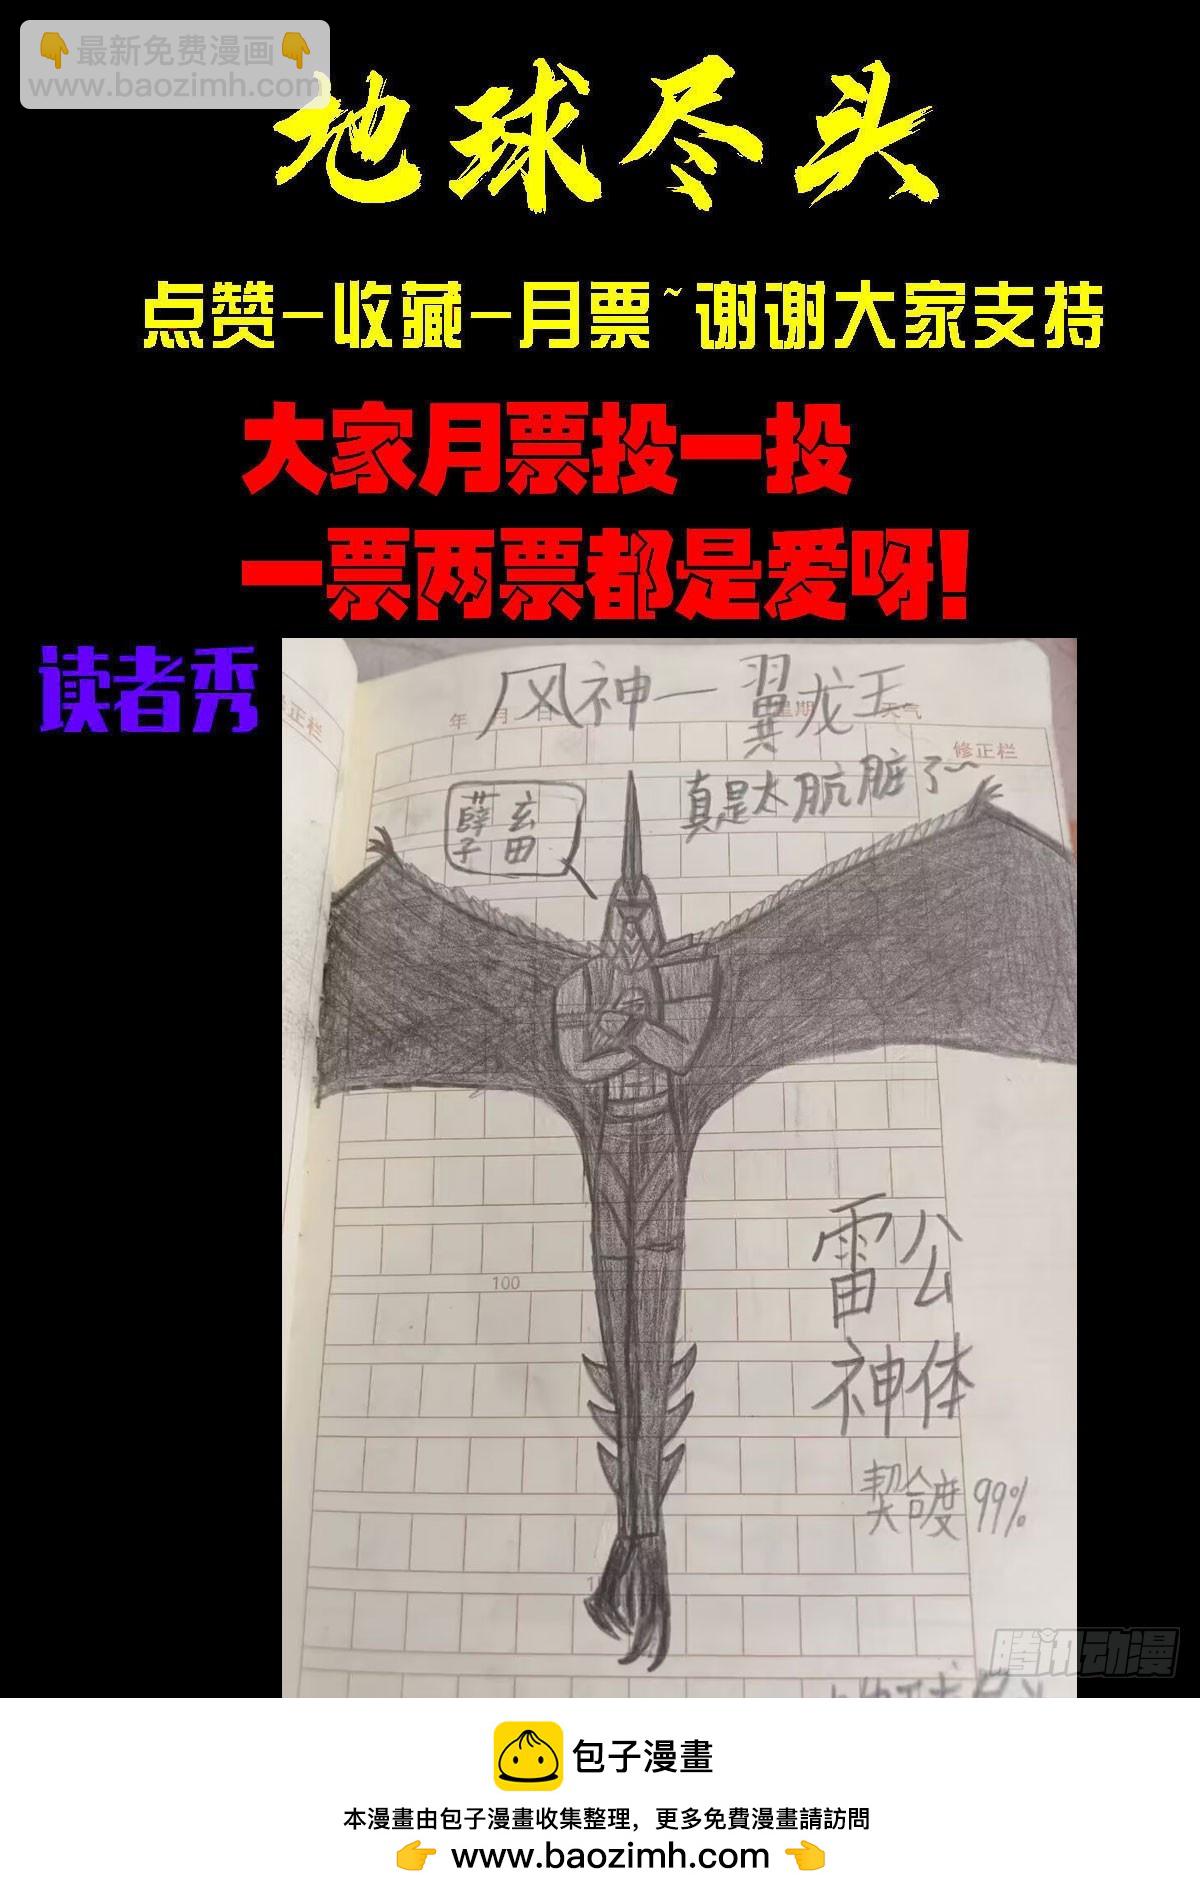 👇最新免费漫画👇
www.baozimh.com
地球尽头
点赞-收藏-月票~谢谢大家支持
大家月票投一投
一票两票都是爱呀!
读者秀
风神一翼龙王
年 月 日 星期 天气
修正栏
修正栏
真是太肮脏了~
孽畜
雷公
神体
100
契合度99%
腾讯动漫
包子漫畫
本漫畫由包子漫畫收集整理，更多免費漫畫請訪問
👉 www.baozimh.com 👈